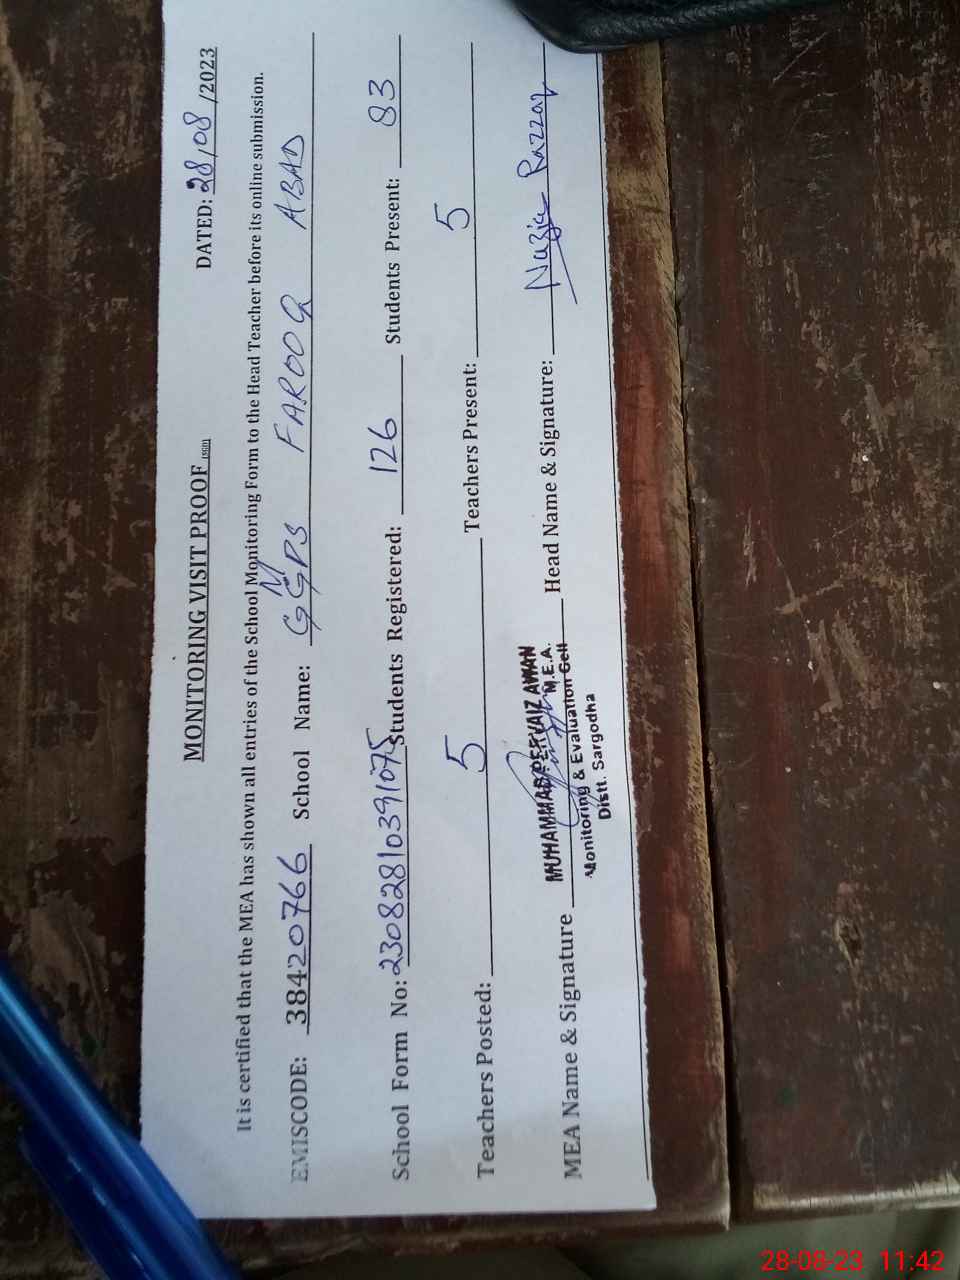 MONITORING VISIT PROOF
DATED: 28/08/2023
It is certified that the MEA has shown all entries of the School Monitoring Form to the Head Teacher before its online submission.
EMISCODE: 38420766 School Name: GGPS M FAROOQ ABAD
School Form No: 23082810391075 Students Registered: 126 Students Present: 83
Teachers Posted: 5 Teachers Present: 5
MEA Name & Signature Head Name & Signature: Nazia Razzaq
MUHAMMAD PERVAIZ AWAN
M.E.A.
Monitoring & Evaluation Cell
Distt. Sargodha
28-08-23 11:42